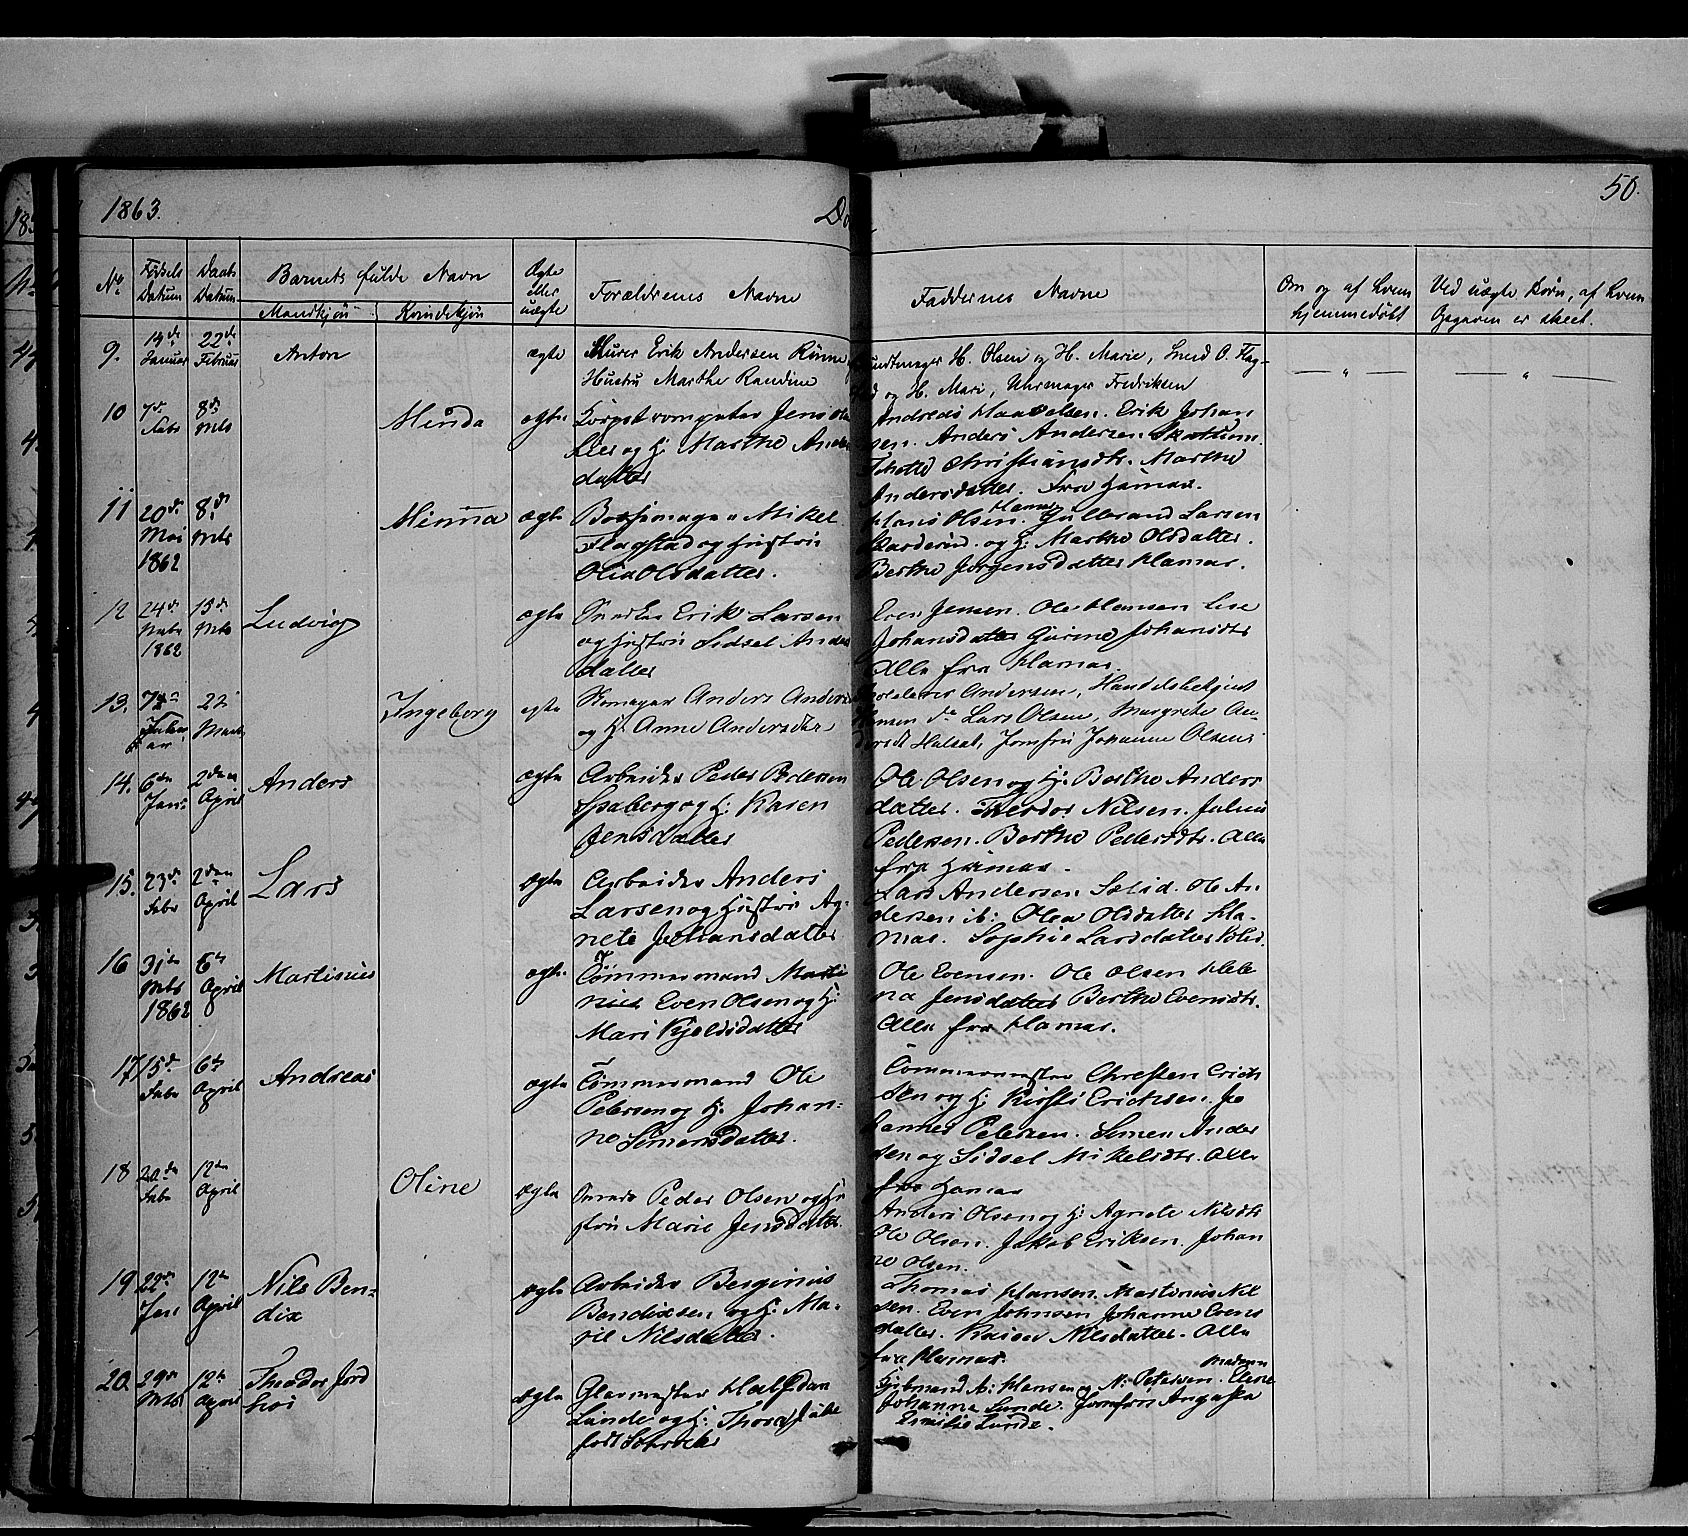 1863.
Do
50.
No
Fødsels Datum
Daabs Datum
Barnets fulde Navn
Mandkjøn
Kvindekjøn
Ægte eller uægte
Forældrenes Navne
Faddernes Navne
Om og af hvem hjemmedøbt
Ved uægte Børn, af hvem Opgaven er skeet.
9.
14de Januar
22de Februar
Anton
ægte
Murer Erik Andersen Rønne
Hustru Marthe Randine
H. Olsen og H. Marie, Smed O. Flag-
og H. Mari, Uhrmager Fredriksen
— " —
— " —
10
7de Febr
8de Mts
Minda
ægte
Jens
og H: Marthe Anders
datter
Andreas Haagelsen. Erik Johan
sen. Anders Andersen Skattum.
Christiansdtr. Marthe
Andersdatter. Fra Hamar.
11
20de Mai 1862
8de Mts
Minna
ægte
Bøssemager Mikel
Flagstad og Hustru
Olia Olsdatter.
Hans Olsen Hamar. Gulbrand Larsen
og H: Marthe Olsdatter.
Berthe Jørgensdatter Hamar.
12
24de 1862
15de Mts
Ludvig
ægte
Snedker Erik Larsen
og Hustru Sidsel Anders
datter
Even Jensen. Ole Hansen Lise
Johansdatter Gurine Johansdtr
Alle fra Hamar.
13.
Januar
22 Marts
Ingeborg
ægte
Skomager Anders Anders
og H. Anne Andersdtr
Andersen, Handelsbetjent
Hansen do Lars Olsen, Margrethe An-
dersdt Halsat, Jomfru Johanne Olsen
14.
6te Janr
2den April
Anders
ægte
Arbeider Peder Pedersen
Spaberg og H: Karen
Jensdatter
Ole Olsen og H: Berthe Anders
datter. Theodor Nilsen. Julius
Pedersen. Berthe Pedersdtr. Alle
fra Hamar.
15.
23de Febr
2den April
Lars
ægte
Arbeider Anders
Larsen og Hustru Ag-
nete Johansdatter
Lars Andersen Sælid. Ole An
dersen ib: Olea Olsdatter Ha-
mar. Sophie Larsdatter
16
31te Mts 1862
6te April
Martinius
ægte
Tømmermand Marti
nius Even Olsen og H:
Mari Kjeldsdatter
Ole Evensen. Ole Olsen Hele
na Jensdatter Berthe Evensdtr.
Alle fra Hamar.
17
15de Febr
6te April
Andreas
ægte
Tømmermand Ole
Petersen og H. Johan-
ne Simensdatter.
Tømmermester Christen Erich
sen og H: Kirsti Erichsen. Jo
hannes Petersen. Simen Ander
sen og Sidsel Mikelsdtr. Alle
fra Hamar
18
20de Febr
12te April
Oline
ægte
Peder Olsen og Hu
stru Marie Jensdatter.
Anders Olsen og H: Agnete Nilsdtr
Ole Olsen. Jakob Eriksen. Johan
ne Olsen.
19
22de Jan
12te April
Nils Ben-
dix
ægte
Arbeider Berginius
Bendixsen og H: Ma-
rie Nilsdatter.
Thomas Hansen. Martinius Nil
sen. Even Johnsen Johanne Evens
datter. Karen Nilsdatter. Alle
fra Hamar.
20.
29de Mts
12te April
Theodor Jørd
ægte
Glarmester Halfdan
Lunde og H: Thora
født
Kjøbmand A: Hansen og N: Petersen. Madam Eline
Johanna Lunde. Jomfru
Emilie Lunde.